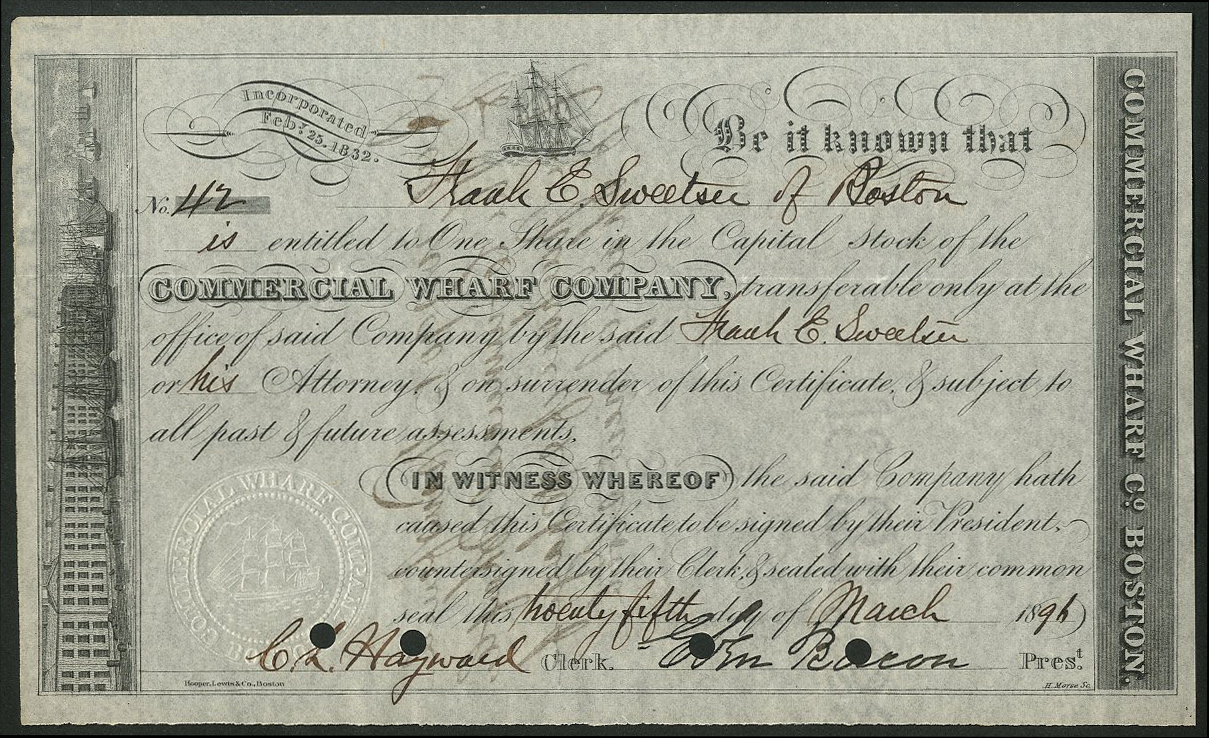 Incorporated
Feb.y 25. 1832.
Be it known that
No. 42 Frank E. Sweetser of Boston
is entitled to One Share in the Capital Stock of the
COMMERCIAL WHARF COMPANY, transferable only at the
office of said Company by the said Frank E. Sweetser
or his Attorney, & on surrender of this Certificate, & subject to
all past & future assessments.
IN WITNESS WHEREOF the said Company hath
caused this Certificate to be signed by their President,
countersigned by their Clerk, & sealed with their common
seal this twenty fifth day of March 1896
C. L. Hayward Clerk. Wm Bacon Prest.
Hooper, Lewis & Co., Boston
H. Morse Sc.
COMMERCIAL WHARF Co. BOSTON.
COMMERCIAL WHARF COMPANY